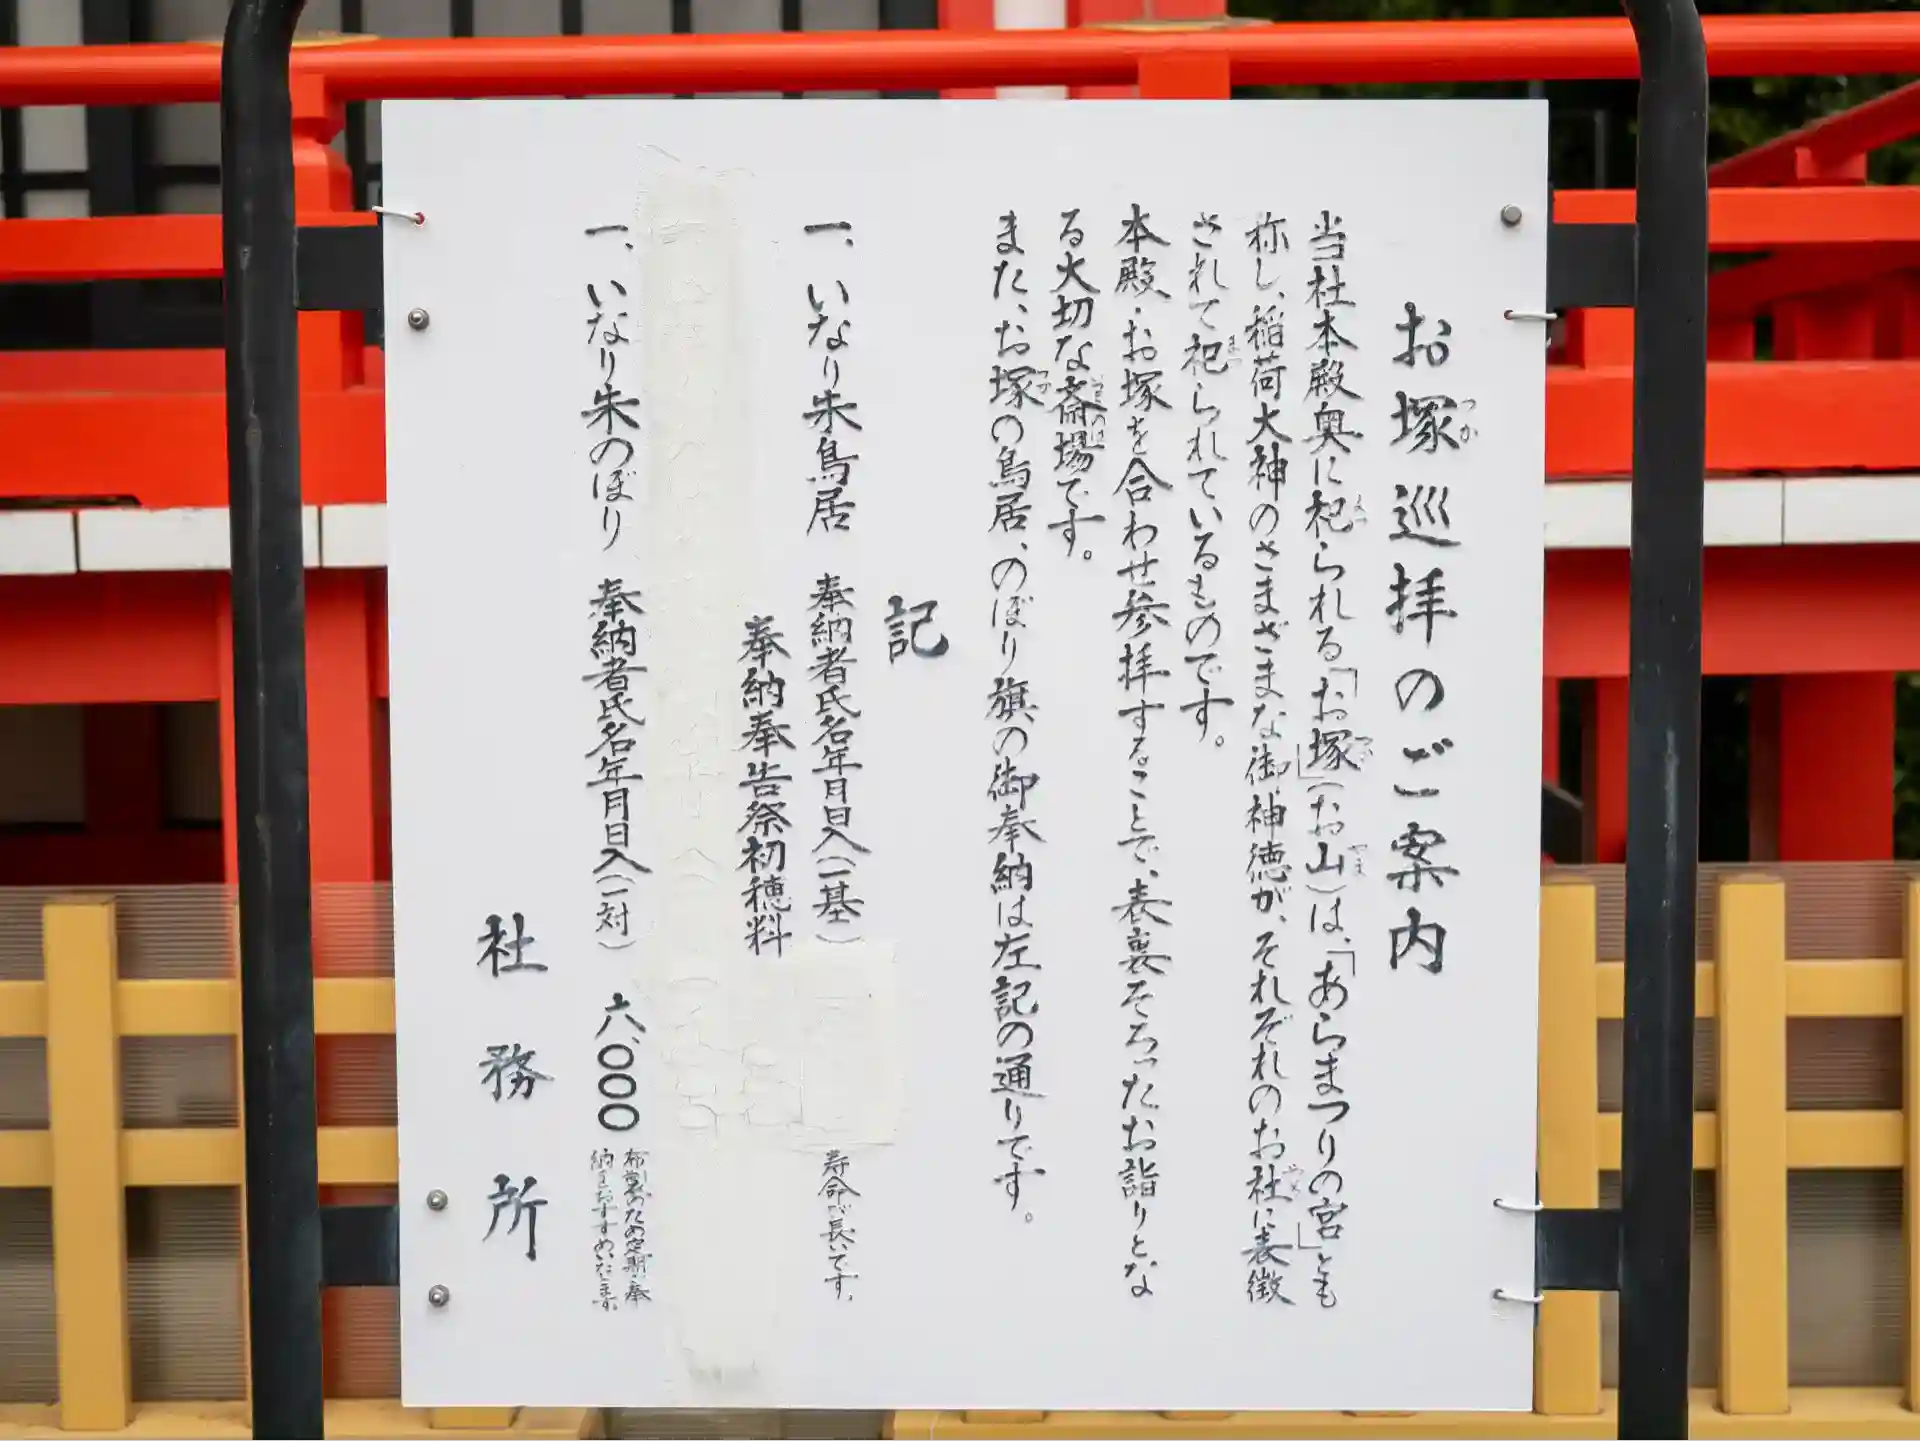 お塚巡拝のご案内
当社本殿奥に祀られる「お塚」(お山)は、「あらまつりの宮」とも
称し、稲荷大神のさまざまな御神徳が、それぞれのお社に表徴
されて祀られているものです。
本殿・お塚を合わせ参拝することで、表裏そろったお詣りとな
る大切な斎場です。
また、お塚の鳥居、のぼり旗の御奉納は左記の通りです。
記
一、いなり朱鳥居 奉納者氏名年月日入(一基) 寿命が長いです。
奉納奉告祭初穂料
一、いなり朱のぼり 奉納者氏名年月日入(一対) 六、〇〇〇 布製のため定期奉
納をおすすめいたします。
社務所